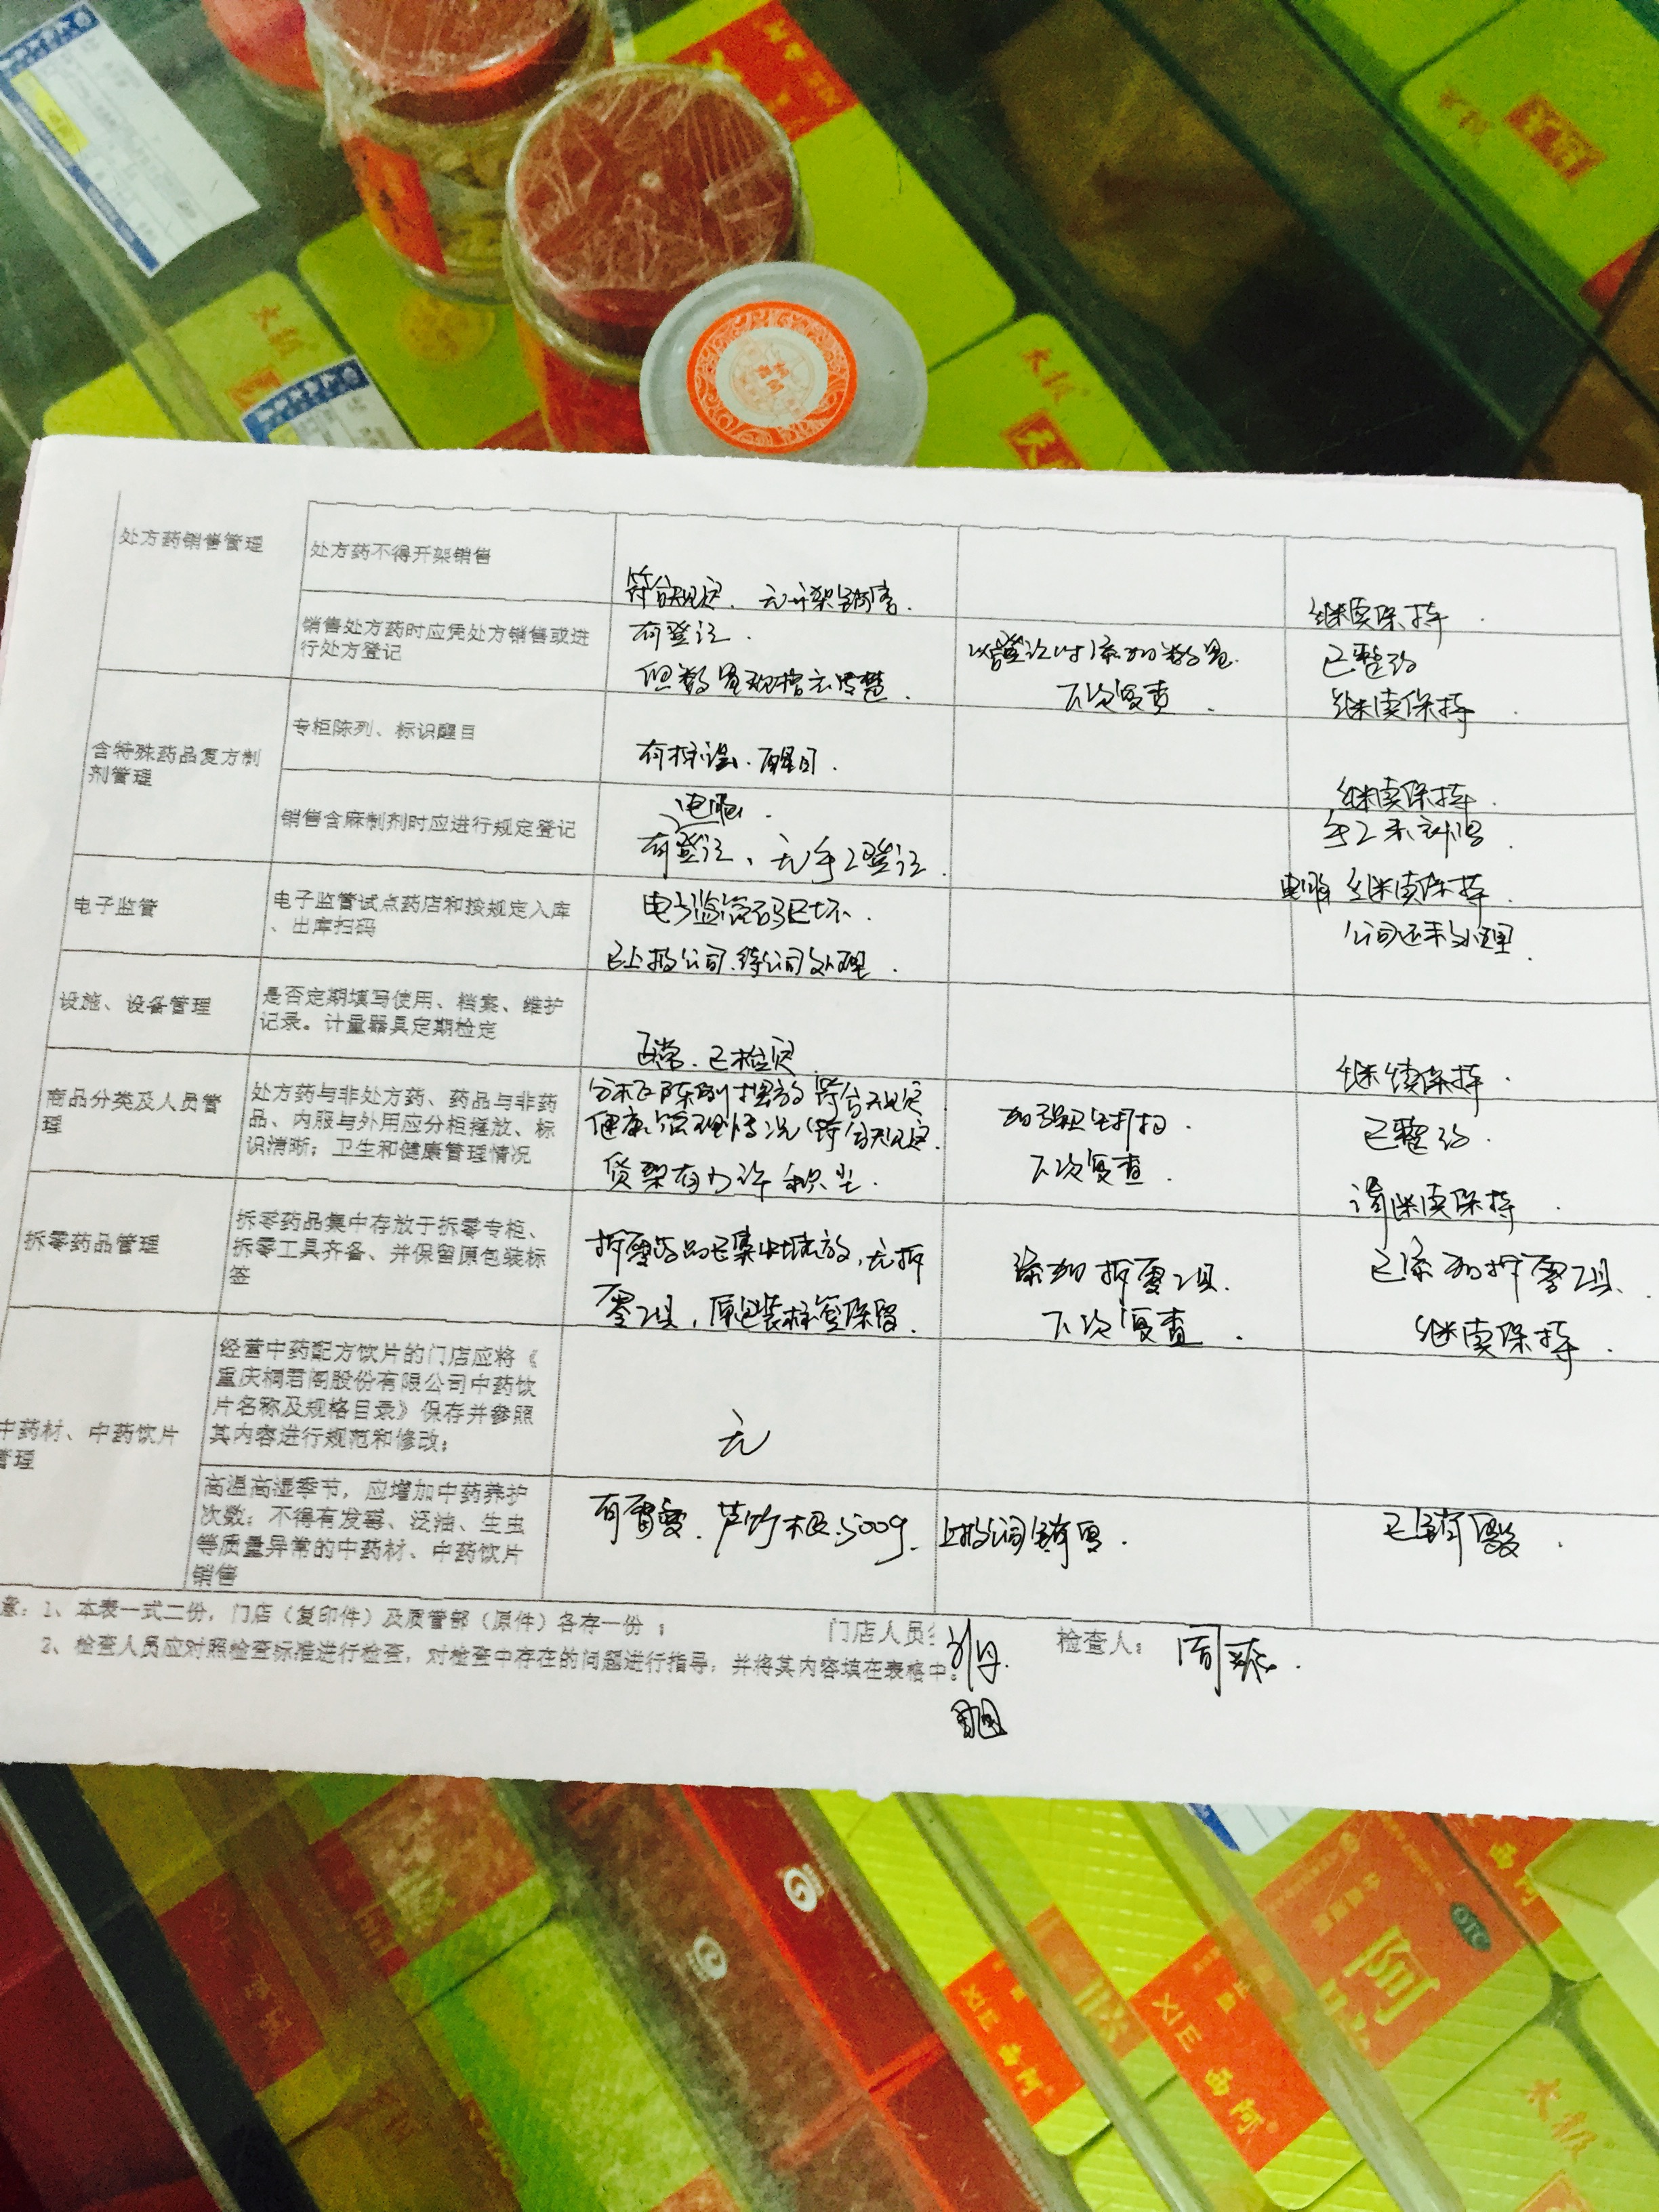 太极
太极
太极
处方药销售管理
处方药不得开架销售
符合规定、无开架销售.
继续保持.
销售处方药时应凭处方销售或进
行处方登记
有登记.
但数量规格不清楚.
登记时添加数量.
下次复查.
已整改
继续保持.
含特殊药品复方制
剂管理
专柜陈列、标识醒目
有标识、醒目.
继续保持.
销售含麻制剂时应进行规定登记
电脑.
有登记、无手工登记.
手工未补得
电脑继续保持.
电子监管
电子监管试点药店和按规定入库
、出库扫码
电子监管码已坏.
已上报公司、待公司处理.
公司还未处理.
设施、设备管理
是否定期填写使用、档案、维护
记录。计量器具定期检定
正常、已检定
继续保持.
商品分类及人员管
理
处方药与非处方药、药品与非药
品、内服与外用应分柜摆放、标
识清晰；卫生和健康管理情况
陈列摆放符合规定
健康管理情况符合规定.
货架有少许积尘.
加强卫生打扫.
下次复查.
已整改.
请继续保持.
拆零药品管理
拆零药品集中存放于拆零专柜、
拆零工具齐备、并保留原包装标
签
拆零药品已集中存放,无拆
零工具,原包装标签保留.
添加拆零工具.
下次复查.
已添加拆零工具.
继续保持.
中药材、中药饮片
管理
经营中药配方饮片的门店应将《
重庆桐君阁股份有限公司中药饮
片名称及规格目录》保存并参照
其内容进行规范和修改；
无
高温高湿季节，应增加中药养护
次数；不得有发霉、泛油、生虫
等质量异常的中药材、中药饮片
销售
有霉变、芦竹根.500g.
上报公司销毁.
已销毁.
意：1、本表一式二份，门店（复印件）及质管部（原件）各存一份；
门店人员
检查人：
2、检查人员应对照检查标准进行检查，对检查中存在的问题进行指导，并将其内容填在表格中。
OTC
阿
XIE 西阿
XIE 西阿
太极